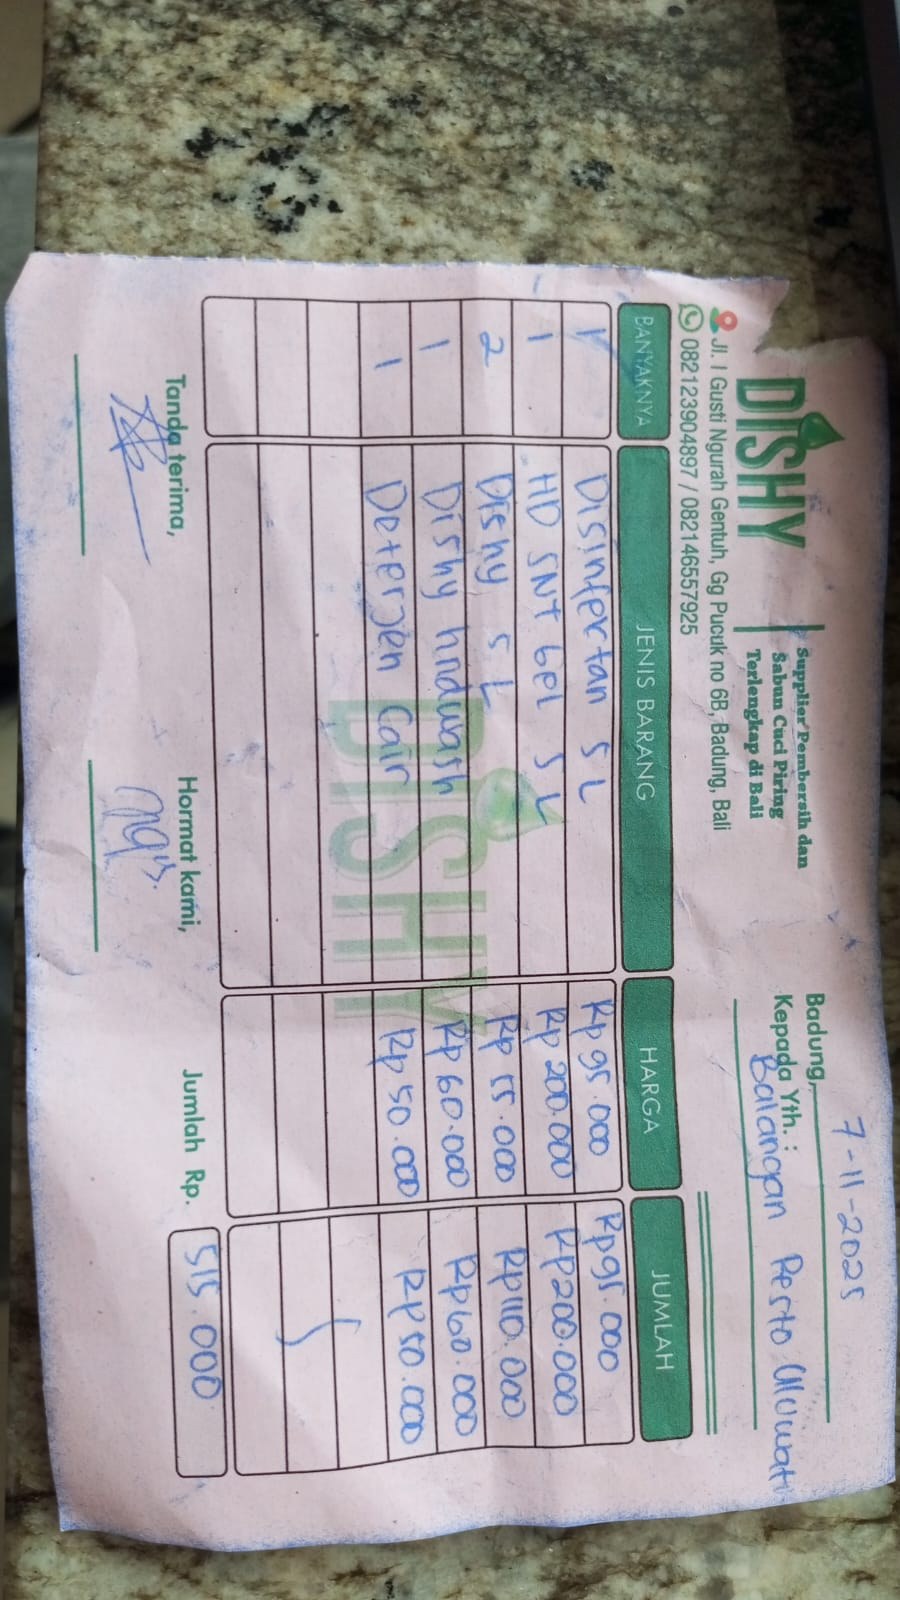 DISHY
Supplier Pembersih dan
Sabun Cuci Piring
Terlengkap di Bali
Jl. I Gusti Ngurah Gentuh, Gg Pucuk no 6B, Badung, Bali
082123904897 / 082146557925
Badung, 7-11-2025
Kepada Yth. :
Balangan Resto Uluwatu
BANYAKNYA JENIS BARANG HARGA JUMLAH
1 Disinfectan 5L Rp 95.000 Rp 95.000
1 HD SNT Gel 5L Rp 200.000 Rp 200.000
2 Dishy 5L Rp 55.000 Rp 110.000
1 Dishy hndwash Rp 60.000 Rp 160.000
1 Deterjen Cair Rp 50.000 Rp 50.000
DISHY
Tanda terima, Hormat kami, Jumlah Rp. 515.000